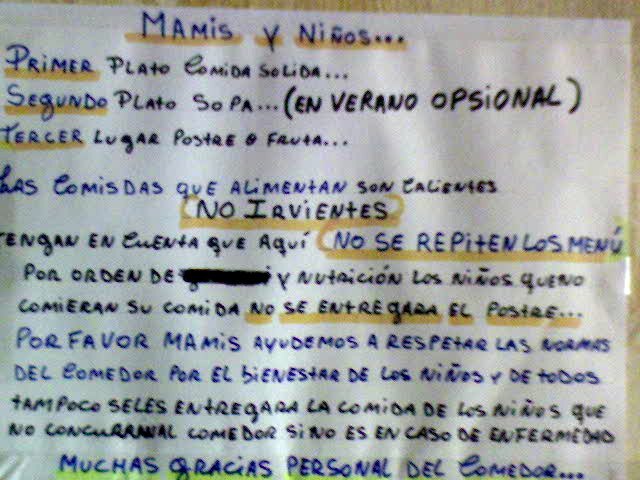 MAMIS Y NIÑOS...
PRIMER PLATO COMIDA SOLIDA...
SEGUNDO PLATO SOPA... (EN VERANO OPSIONAL)
TERCER LUGAR POSTRE O FRUTA...
LAS COMISDAS QUE ALIMENTAN SON CALIENTES
NO IRVIENTES
TENGAN EN CUENTA QUE AQUÍ NO SE REPITEN LOS MENÚ
POR ORDEN DE Y NUTRICIÓN LOS NIÑOS QUE NO
COMIERAN SU COMIDA NO SE ENTREGARA EL POSTRE...
POR FAVOR MAMIS AYUDEMOS A RESPETAR LAS NORMAS
DEL COMEDOR POR EL BIENESTAR DE LOS NIÑOS Y DE TODOS
TAMPOCO SELES ENTREGARA LA COMIDA DE LOS NIÑOS QUE
NO CONCURRAN AL COMEDOR SI NO ES EN CASO DE ENFERMEDAD
MUCHAS GRACIAS PERSONAL DEL COMEDOR...